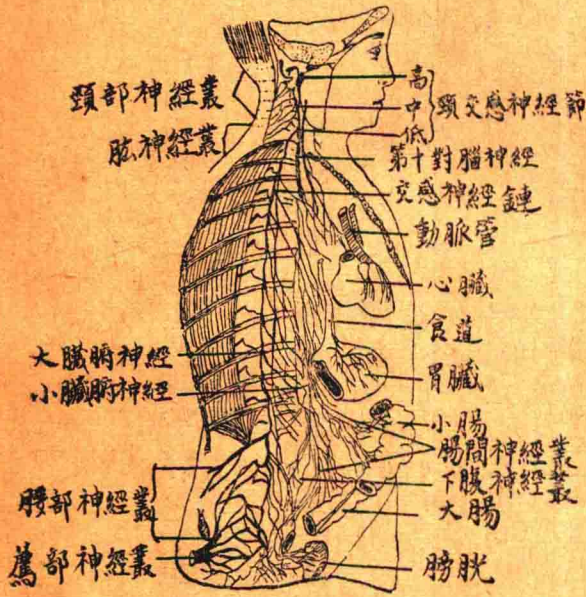 頸部神經叢
肱神經叢
大臟腑神經
小臟腑神經
腰部神經叢
薦部神經叢
高
中
低
頸交感神經節
第十對腦神經
交感神經鏈
動脈管
心臟
食道
胃臟
小腸
腸間神經叢
下腹神經叢
大腸
膀胱